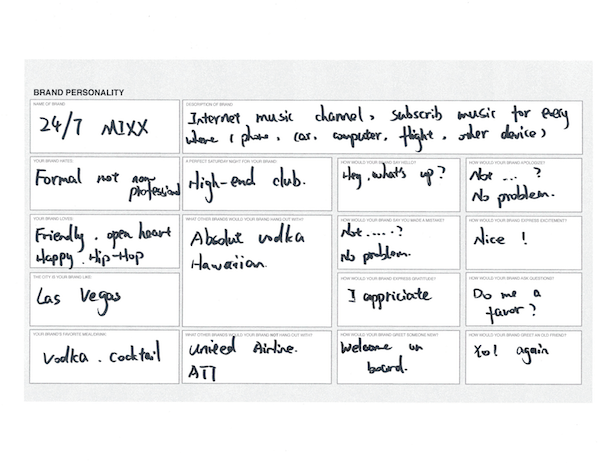 BRAND PERSONALITY
NAME OF BRAND
24/7 MIXX
DESCRIPTION OF BRAND
Internet music channel, subscrib music for every
where ( phone, car, computer, flight, other device)
YOUR BRAND HATES:
Formal not non-
professional
A PERFECT SATURDAY NIGHT FOR YOUR BRAND:
High-end club.
HOW WOULD YOUR BRAND SAY HELLO?
Hey, what's up?
HOW WOULD YOUR BRAND APOLOGIZE?
Not ... ?
No problem.
YOUR BRAND LOVES:
Friendly. open heart
Happy. Hip-Hop
WHAT OTHER BRANDS WOULD YOUR BRAND HANG OUT WITH?
Absolut vodka
Hawaiian.
HOW WOULD YOUR BRAND SAY YOU MADE A MISTAKE?
Not.....?
No problem.
HOW WOULD YOUR BRAND EXPRESS EXCITEMENT?
Nice !
THE CITY IS YOUR BRAND LIKE:
Las Vegas
HOW WOULD YOUR BRAND EXPRESS GRATITUDE?
I appriciate
HOW WOULD YOUR BRAND ASK QUESTIONS?
Do me a
favor?
YOUR BRAND'S FAVORITE MEAL/DRINK:
Vodka. cocktail
WHAT OTHER BRANDS WOULD YOUR BRAND NOT HANG OUT WITH?
united Airline.
HOW WOULD YOUR BRAND GREET SOMEONE NEW?
Welcome on
board.
HOW WOULD YOUR BRAND GREET AN OLD FRIEND?
Yo! again